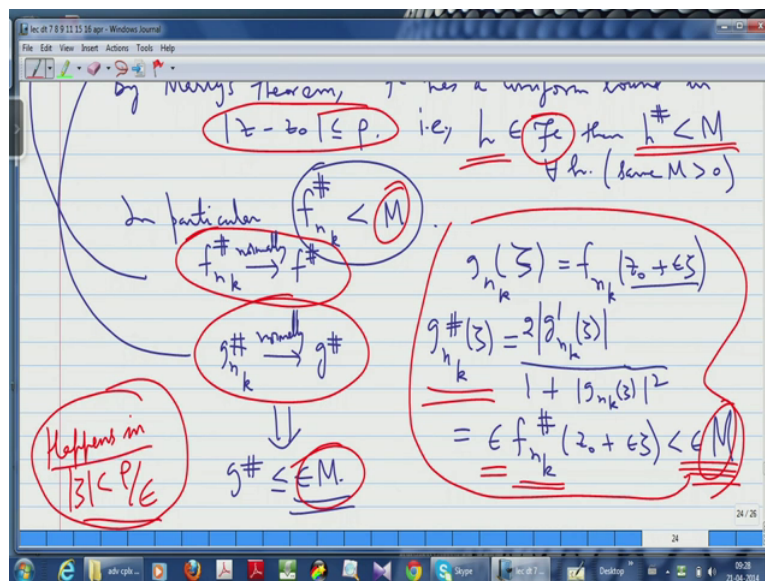 lec dt 7 8 9 11 15 16 apr - Windows Journal
File Edit View Insert Actions Tools Help
By Marty's Theorem, has a uniform bound in
|z - z₀| ≤ ρ. i.e, h ∈ ℱ then h^# < M
∀ h. (same M > 0)
In particular f_{n_k}^# < M.
f_{n_k}^# normally → f^#
g_{n_k}(ζ) = f_{n_k}(z₀ + εζ)
g_{n_k}^# normally → g^#
g_{n_k}^#(ζ) = 2|g'_{n_k}(ζ)| / 1 + |g_{n_k}(ζ)|²
= ε f_{n_k}^#(z₀ + εζ) < εM
⇓
g^# ≤ εM.
Happens in
|ζ| < ρ/ε
24 / 26
24
adv cplx ...
Skype
lec dt 7 ...
Desktop
09:28
21-04-2014